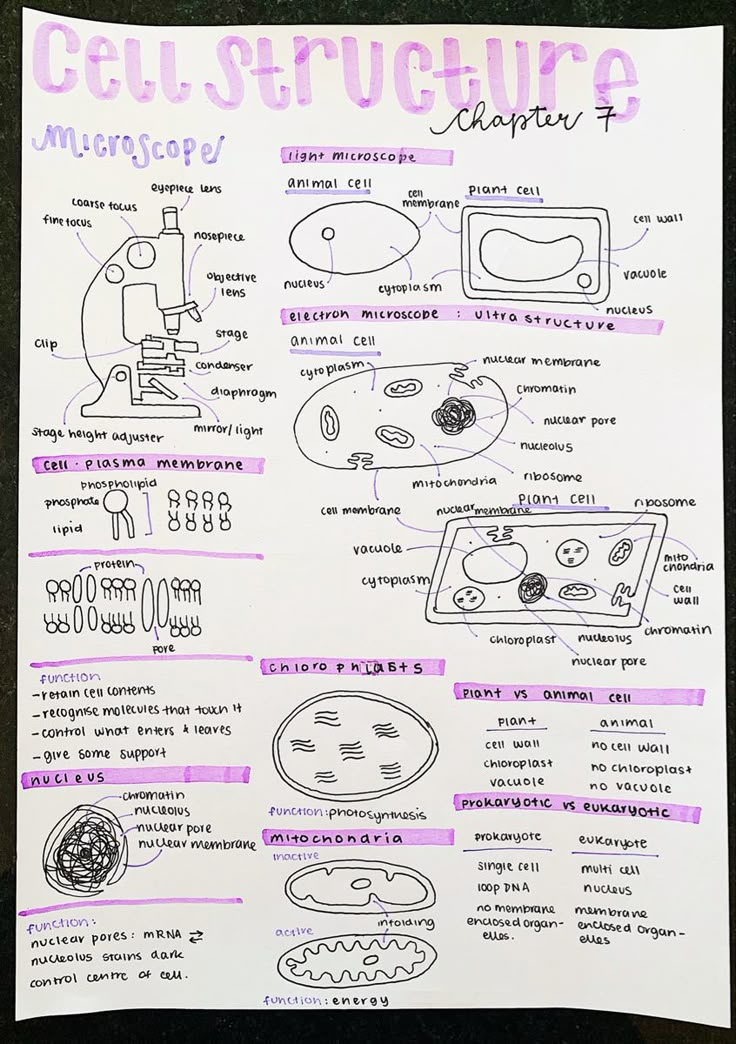 cell structure
chapter 7
Microscope
eyepiece lens
coarse focus
fine focus
nosepiece
objective
lens
stage
clip
condenser
diaphragm
mirror/light
stage height adjuster
cell · plasma membrane
phospholipid
phosphate
lipid
protein
pore
function
- retain cell contents
- recognise molecules that touch it
- control what enters & leaves
- give some support
nucleus
chromatin
nucleolus
nuclear pore
nuclear membrane
function:
nuclear pores: mRNA ⇄
nucleolus stains dark
control centre of cell.
light microscope
animal cell
cell
membrane
plant cell
cell wall
vacuole
nucleus
cytoplasm
nucleus
electron microscope : ultra structure
animal cell
cytoplasm
nuclear membrane
chromatin
nuclear pore
nucleolus
ribosome
mitochondria
cell membrane
plant cell
nuclear membrane
ribosome
vacuole
mito
chondria
cytoplasm
cell
wall
chromatin
chloroplast
nucleolus
nuclear pore
chlorophlasts
function: photosynthesis
mitochondria
inactive
infolding
active
function: energy
plant vs animal cell
plant animal
cell wall no cell wall
chloroplast no chloroplast
vacuole no vacuole
prokaryotic vs eukaryotic
prokaryote eukaryote
single cell multi cell
loop DNA nucleus
no membrane membrane
enclosed organ- enclosed organ-
elles. elles